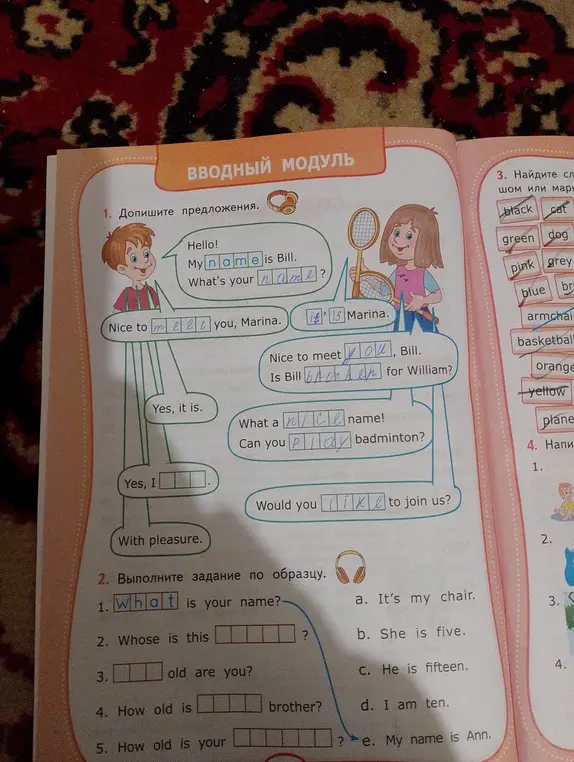 ВВОДНЫЙ МОДУЛЬ
1. Допишите предложения.
Hello!
My name is Bill.
What's your name?
Nice to meet you, Marina.
it' is Marina.
Nice to meet you, Bill.
Is Bill for William?
Yes, it is.
What a nice name!
Can you play badminton?
Yes, I .
Would you like to join us?
With pleasure.
2. Выполните задание по образцу.
1. What is your name?
2. Whose is this ?
3. old are you?
4. How old is brother?
5. How old is your ?
a. It's my chair.
b. She is five.
c. He is fifteen.
d. I am ten.
e. My name is Ann.
3. Найдите
шом или
black cat
green dog
pink grey
blue
basketball
orange
yellow
plane
4.
1.
2.
3.
4.